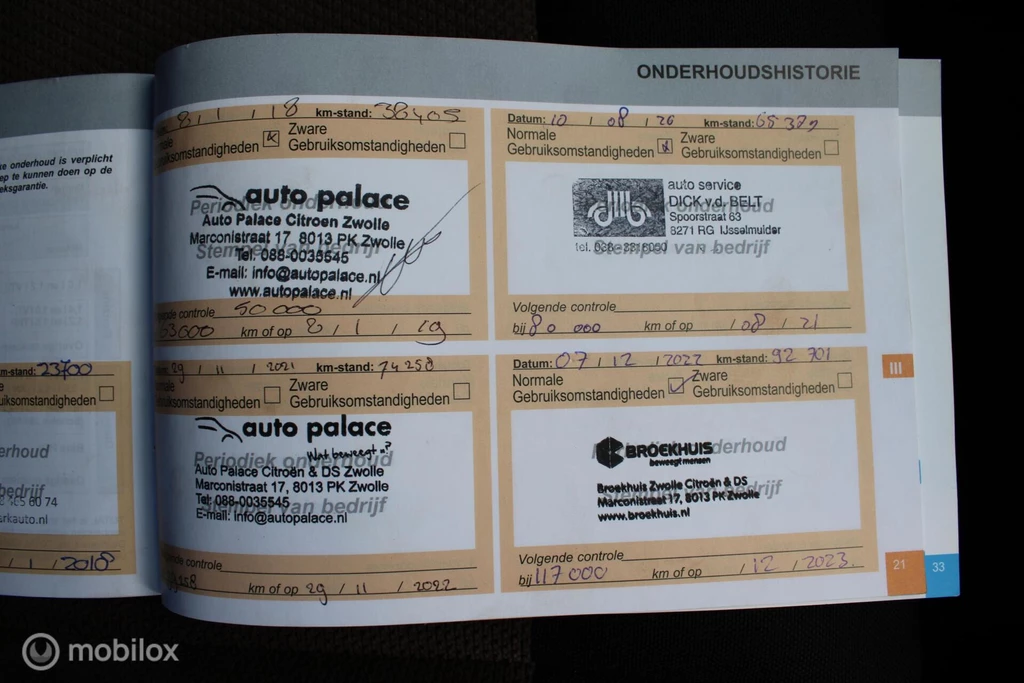 ONDERHOUDSHISTORIE
ke onderhoud is verplicht
ep te kunnen doen op de
eksgarantie.
km-stand: 23700
iksomstandigheden
derhoud
bedrijf
60 74
rkauto.nl
/ 1 / 2018
8 / 1 / 18 km-stand: 38405
Zware
ksomstandigheden Gebruiksomstandigheden
Periodiek onderhoud
Stempel van bedrijf
auto palace
Auto Palace Citroen Zwolle
Marconistraat 17, 8013 PK Zwolle
Tel. 088-0035545
E-mail: info@autopalace.nl
www.autopalace.nl
controle 50 000
km of op 8 / 1 / 19
Datum: 10 / 08 / 20 km-stand: 65 379
Normale Zware
Gebruiksomstandigheden Gebruiksomstandigheden
auto service
DICK v.d. BELT
Spoorstraat 63
8271 RG IJsselmuiden
tel.
Stempel van bedrijf
Volgende controle
bij 80 000 km of op / 08 / 21
29 / 11 / 2021 km-stand: 74258
Zware
Gebruiksomstandigheden
auto palace
Wat beweegt u?
Periodiek onderhoud
Auto Palace Citroën & DS Zwolle
Marconistraat 17, 8013 PK Zwolle
Tel: 088-0035545
E-mail: info@autopalace.nl
van bedrijf
controle
km of op 29 / 11 / 2022
Datum: 07 / 12 / 2022 km-stand: 92 701
Normale Zware
Gebruiksomstandigheden Gebruiksomstandigheden
BROEKHUIS
beweegt mensen
Broekhuis Zwolle Citroën & DS
Marconistraat 17, 8013 PK Zwolle
www.broekhuis.nl
Volgende controle
bij 117 000 km of op / 12 / 2023
III
21
33
mobilox